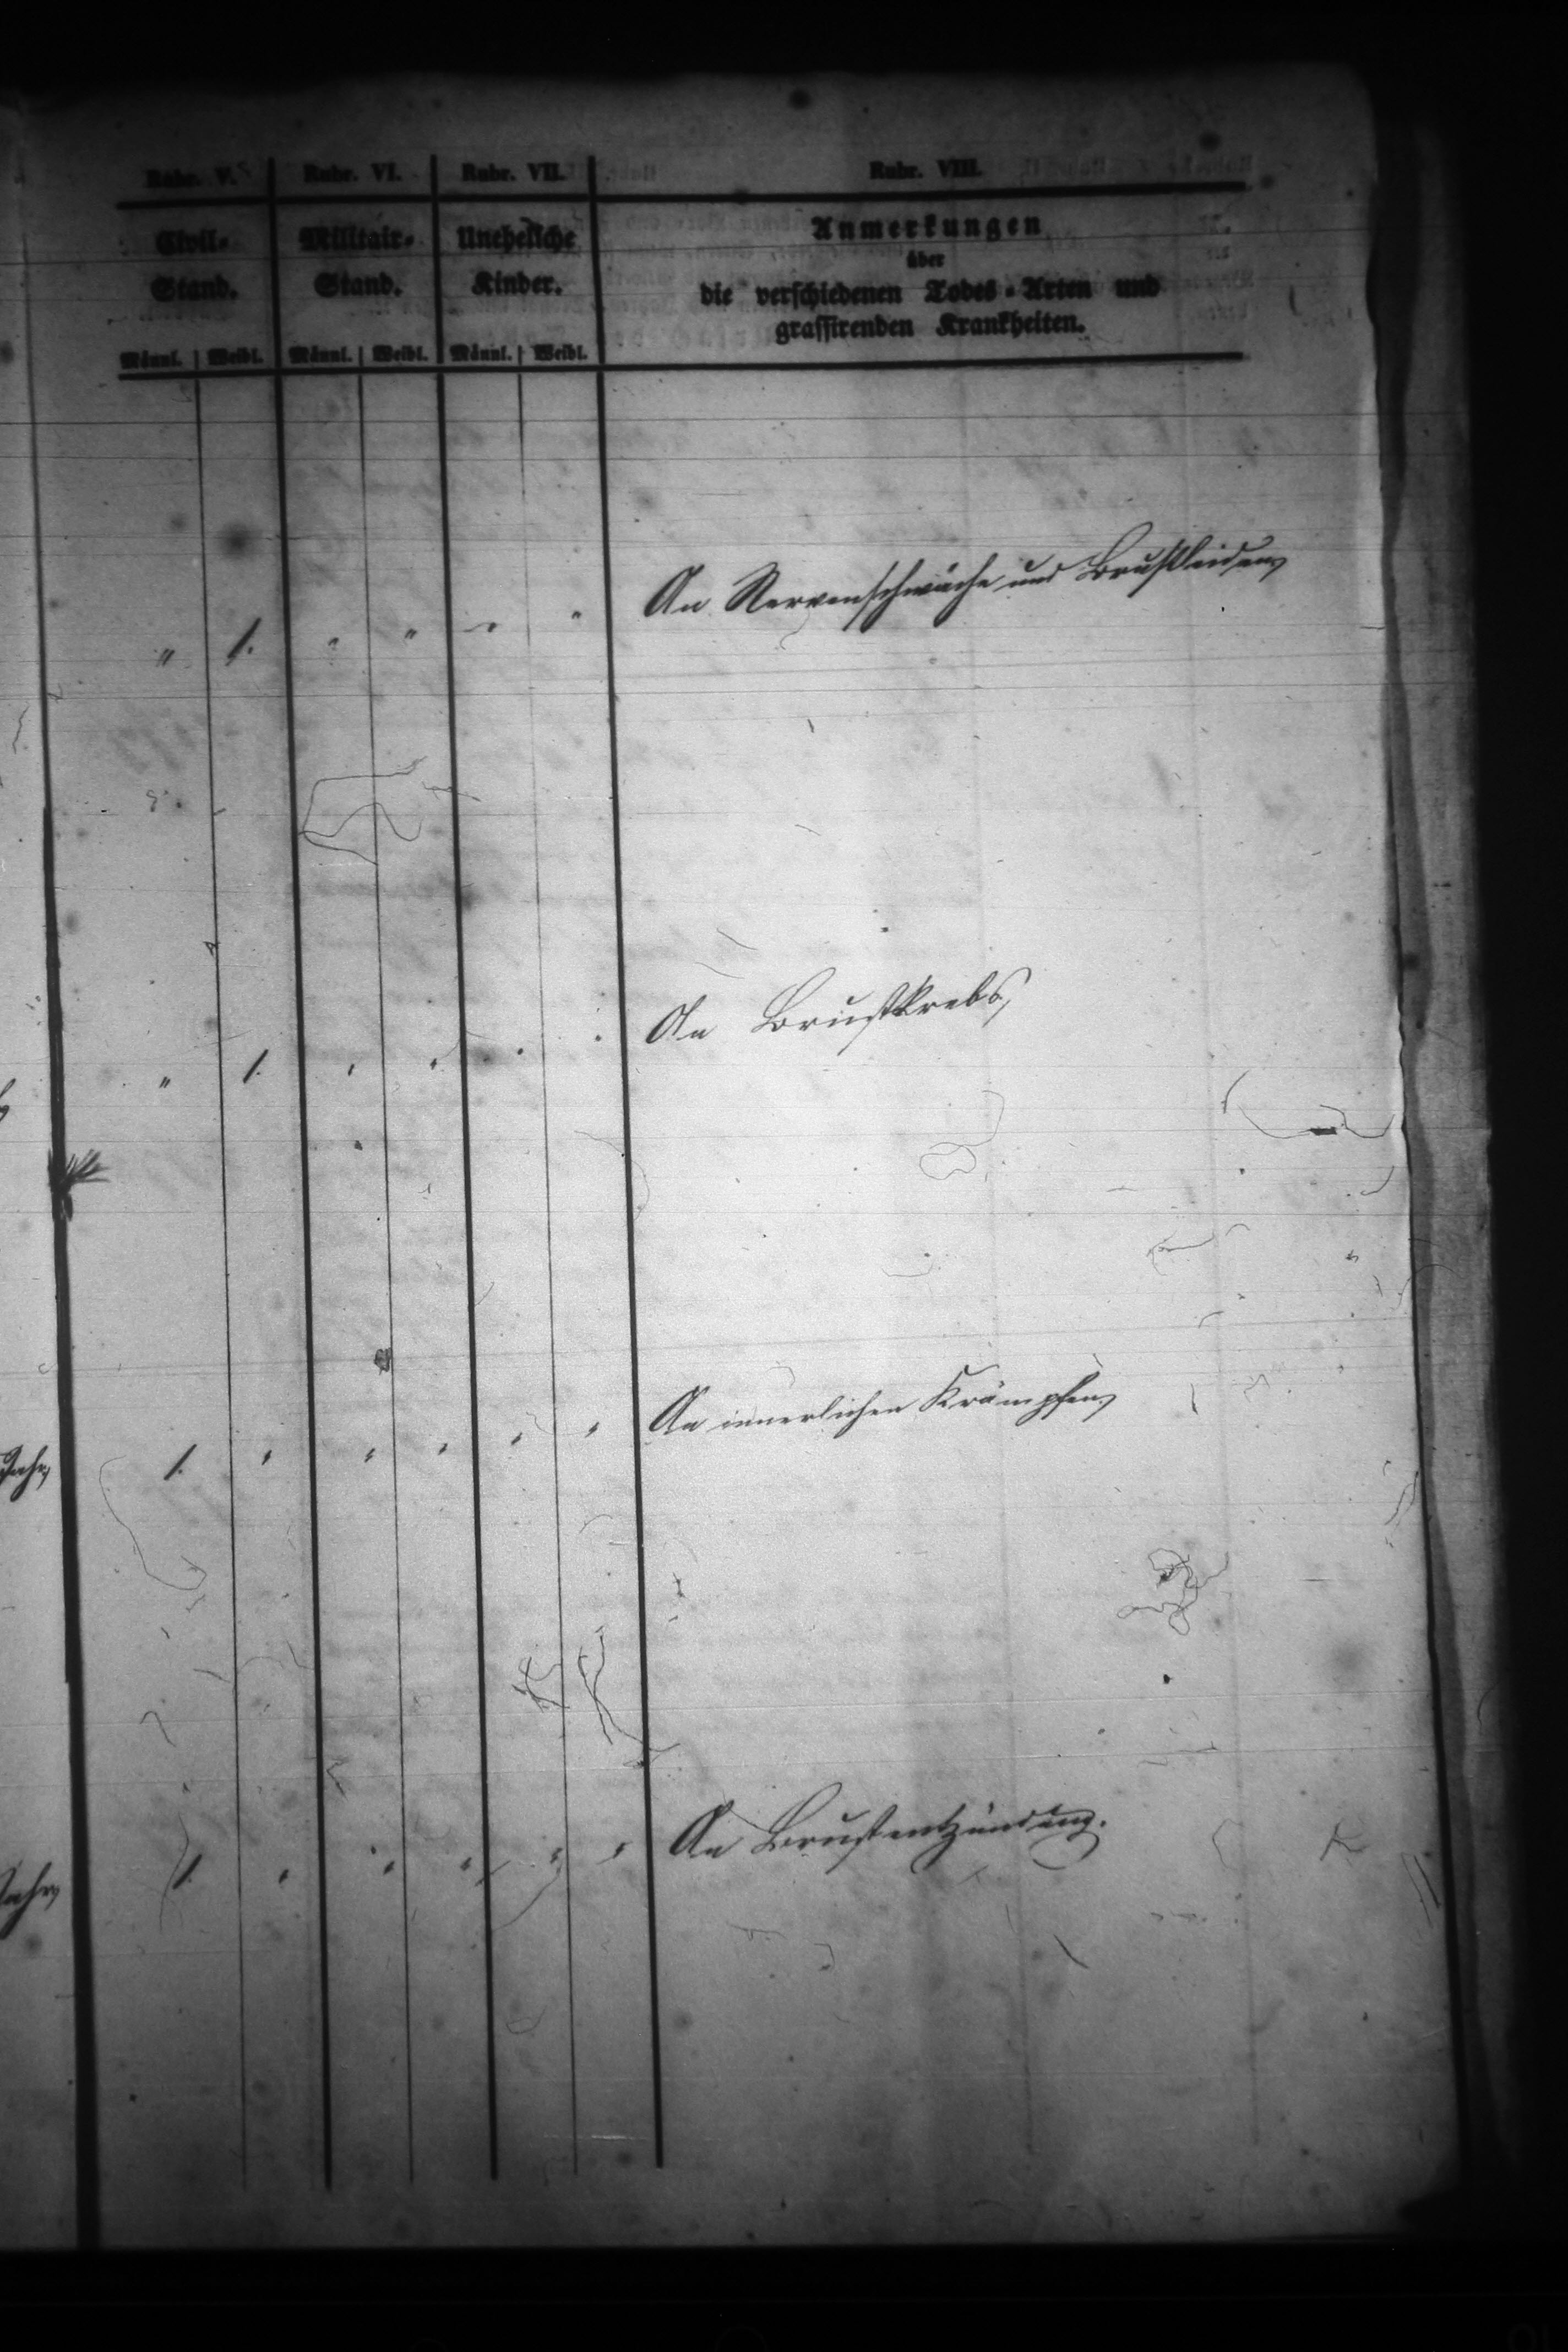 Rubr. V. Rubr. VI. Rubr. VII. Rubr. VIII.
Civil- Militair- Uneheliche Anmerkungen
Stand. Stand. Kinder. über
die verschiedenen Todes-Arten und
grassirenden Krankheiten.
Männl. Weibl. Männl. Weibl. Männl. Weibl.
" 1. " " " " An Nervenschwäche und Brustleiden
" 1. " " " " An Brustkrebs
Jahr 1. " " " " " An innerlichen Krämpfen
Jahr 1. " " " " " An Brustentzündung.